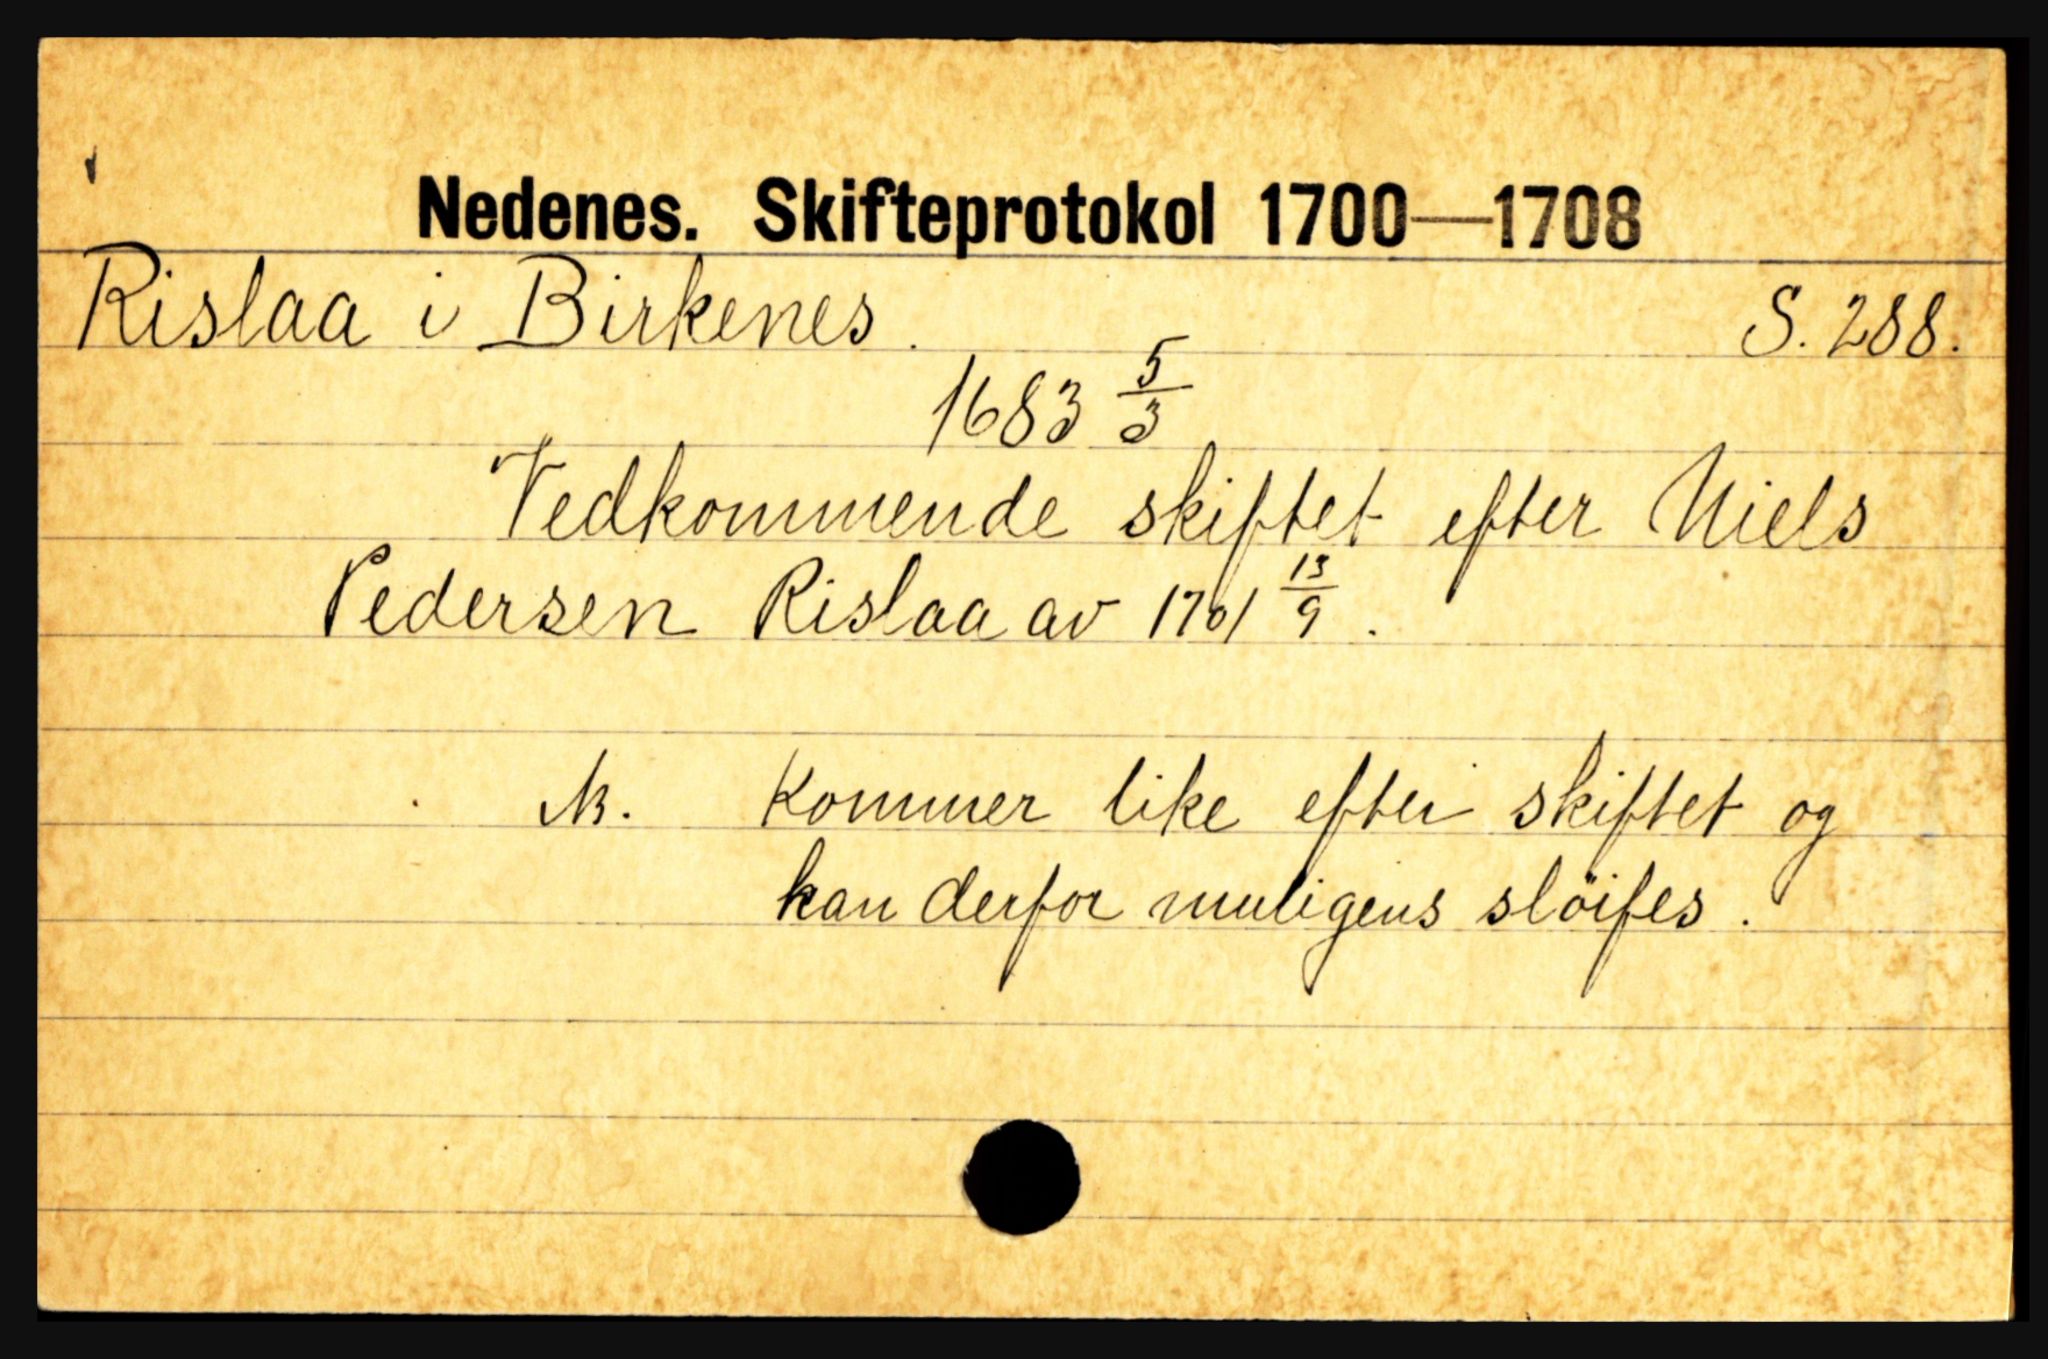 Nedenes. Skifteprotokol 1700—1708
Rislaa i Birkenes. S. 288.
1683 5/3
Vedkommende skiftet efter Niels
Pedersen Rislaa av 1701 13/9.
N. Kommer like efter skiftet og
kan derfor muligens slöifes.